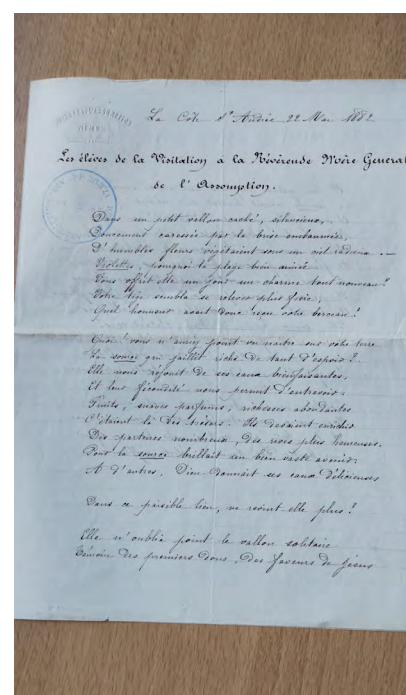 La Côte St André 22 Mai 1882
Les élèves de la Visitation à la Révérende Mère General
de l'Assomption.
Dans un petit vallon caché, silencieux,
Doucement caressée par la brise embaumée,
D'humbles fleurs végétaient sous un ciel radieux. —
Violettes, pourquoi la plage bien aimée
Vous offrit elle un jour un charme tout nouveau?
Votre tige sembla se relever plus fière,
Quel honneur avait donc reçu votre berceau!
Quoi! vous n'auriez point vu naître sur votre terre
La source qui jaillit riche de tant d'espoir?
Elle nous réjouit de ses eaux bienfaisantes,
Et leur fécondité nous permit d'entrevoir
Fruits, suaves parfums, richesses abondantes
C'étaient là des trésors. Ils devaient enrichir
Des parterres nombreux, des rives plus heureuses.
Pour la source brillait un bien vaste avenir,
A d'autres, Dieu donnait ses eaux délicieuses
Dans ce paisible lieu, ne revint elle plus?
Elle n'oublia point le vallon solitaire
Témoin des premiers dons, des faveurs de Jésus